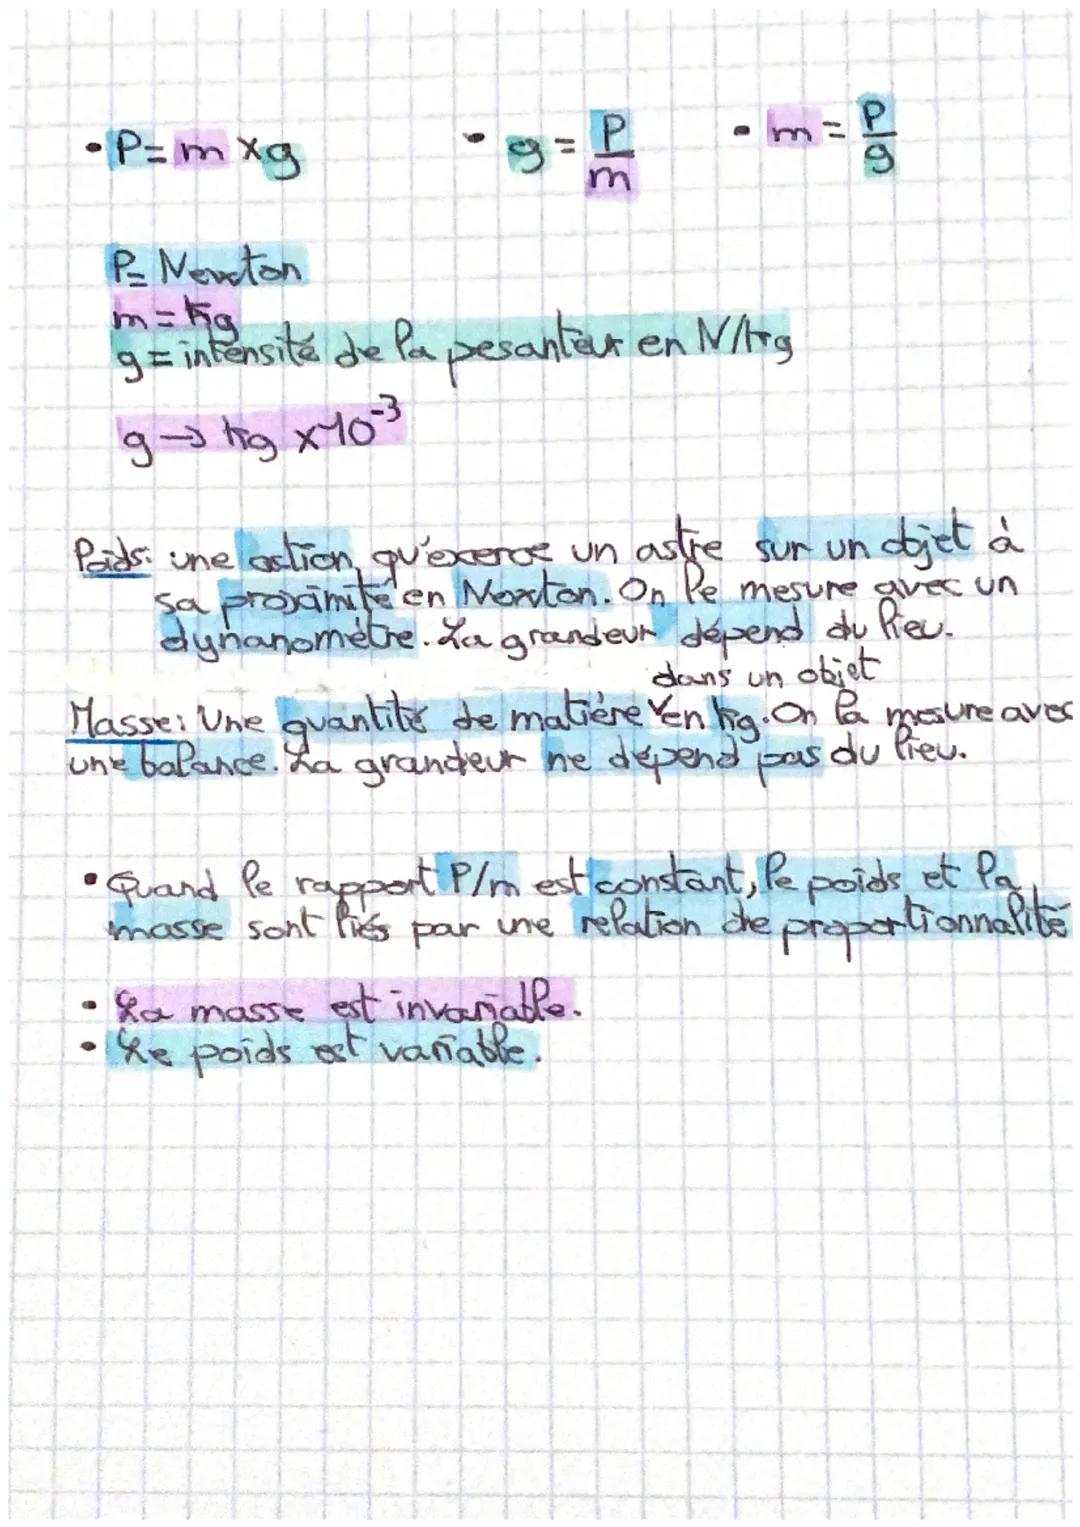 • P = m × g • g = P/m • m = P/g
P = Newton
m = kg
g = intensité de la pesanteur en N/kg
g → kg ×10⁻³
Poids: une action qu'exerce un astre sur un objet à
sa proximité en Newton. On le mesure avec un
dynanomètre. La grandeur dépend du lieu.
dans un objet
Masse: Une quantité de matière ∨ en kg. On la mesure avec
une balance. La grandeur ne dépend pas du lieu.
• Quand le rapport P/m est constant, le poids et la
masse sont liés par une relation de proportionnalité
• La masse est invariable.
• Le poids est variable.